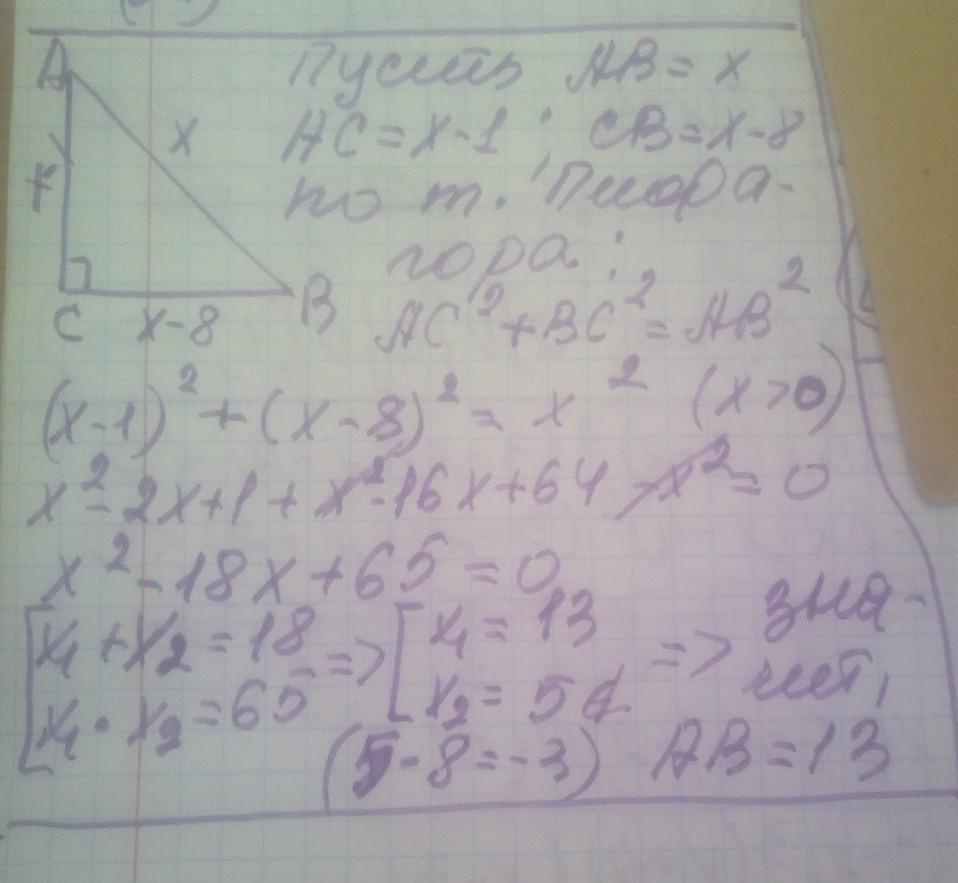 Пусть AB = x
AC = x-1; CB = x-8
по т. Пифа-
гора:
AC² + BC² = AB²
A
x
C
x-8
B
(x-1)² + (x-8)² = x² (x>0)
x² - 2x + 1 + x² - 16x + 64 - x² = 0
x² - 18x + 65 = 0
[x₁ + x₂ = 18
x₁ · x₂ = 65
=> [x₁ = 13
x₂ = 5 ∉
=> зна-
чит,
(5-8=-3) AB = 13